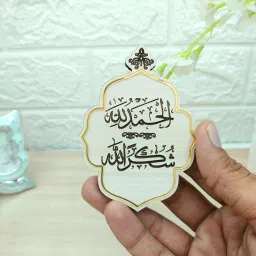 الحمد لله
شكرا لله